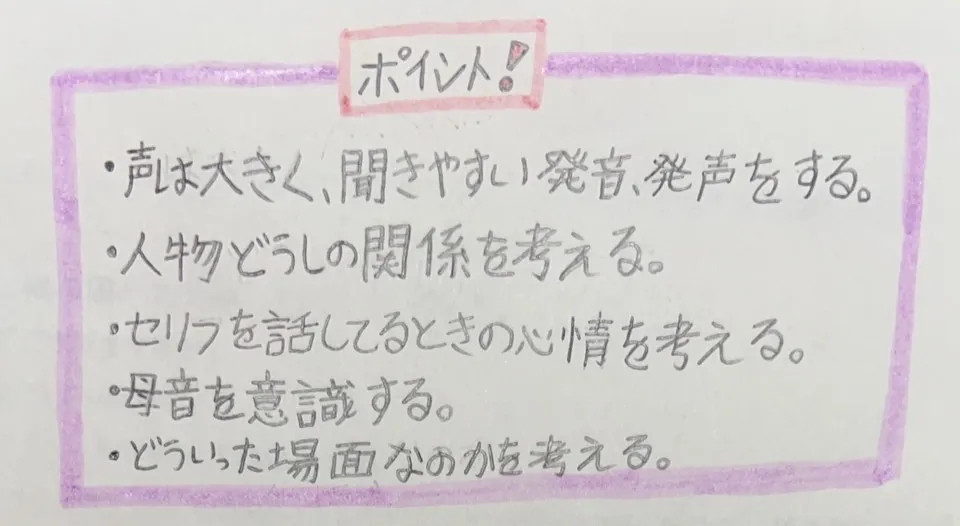 ポイント!
・声は大きく、聞きやすい発音、発声をする。
・人物どうしの関係を考える。
・セリフを話してるときの心情を考える。
・母音を意識する。
・どういった場面なのかを考える。